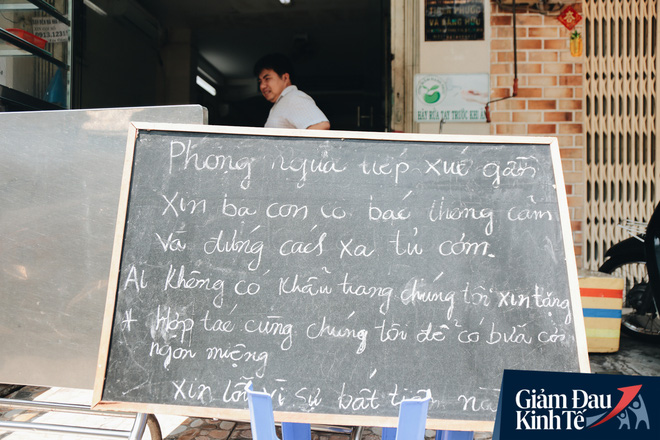 0913.1235
HÃY RỬA TAY TRƯỚC KHI ĂN
Phòng ngừa tiếp xúc gần
Xin bà con cô bác thông cảm
và đứng cách xa tủ cơm.
Ai không có khẩu trang chúng tôi xin tặng
# Hợp tác cùng chúng tôi để có bữa cơm
ngon miệng
xin lỗi vì sự bất tiện này
Giảm Đau
Kinh Tế